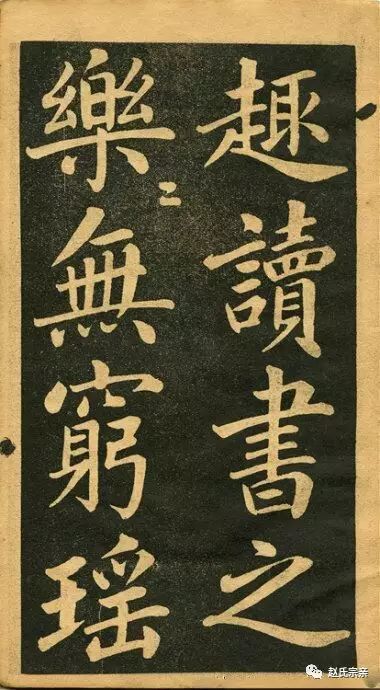 趣讀書之
樂〻無窮瑶
赵氏宗亲